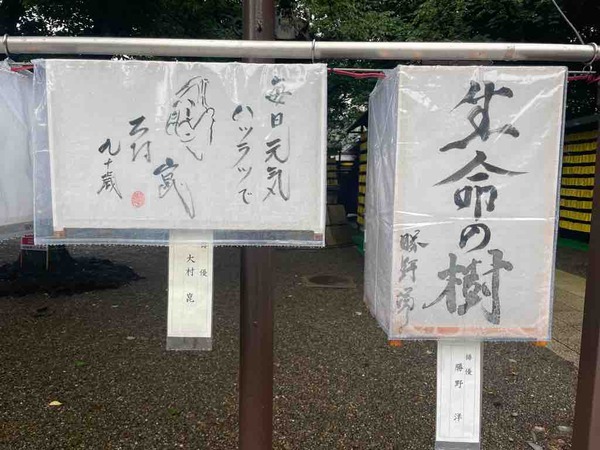 毎日元気
ハツラツで
大村
崑
九十歳
俳優
大村崑
生命の樹
勝野洋
俳優
勝野洋